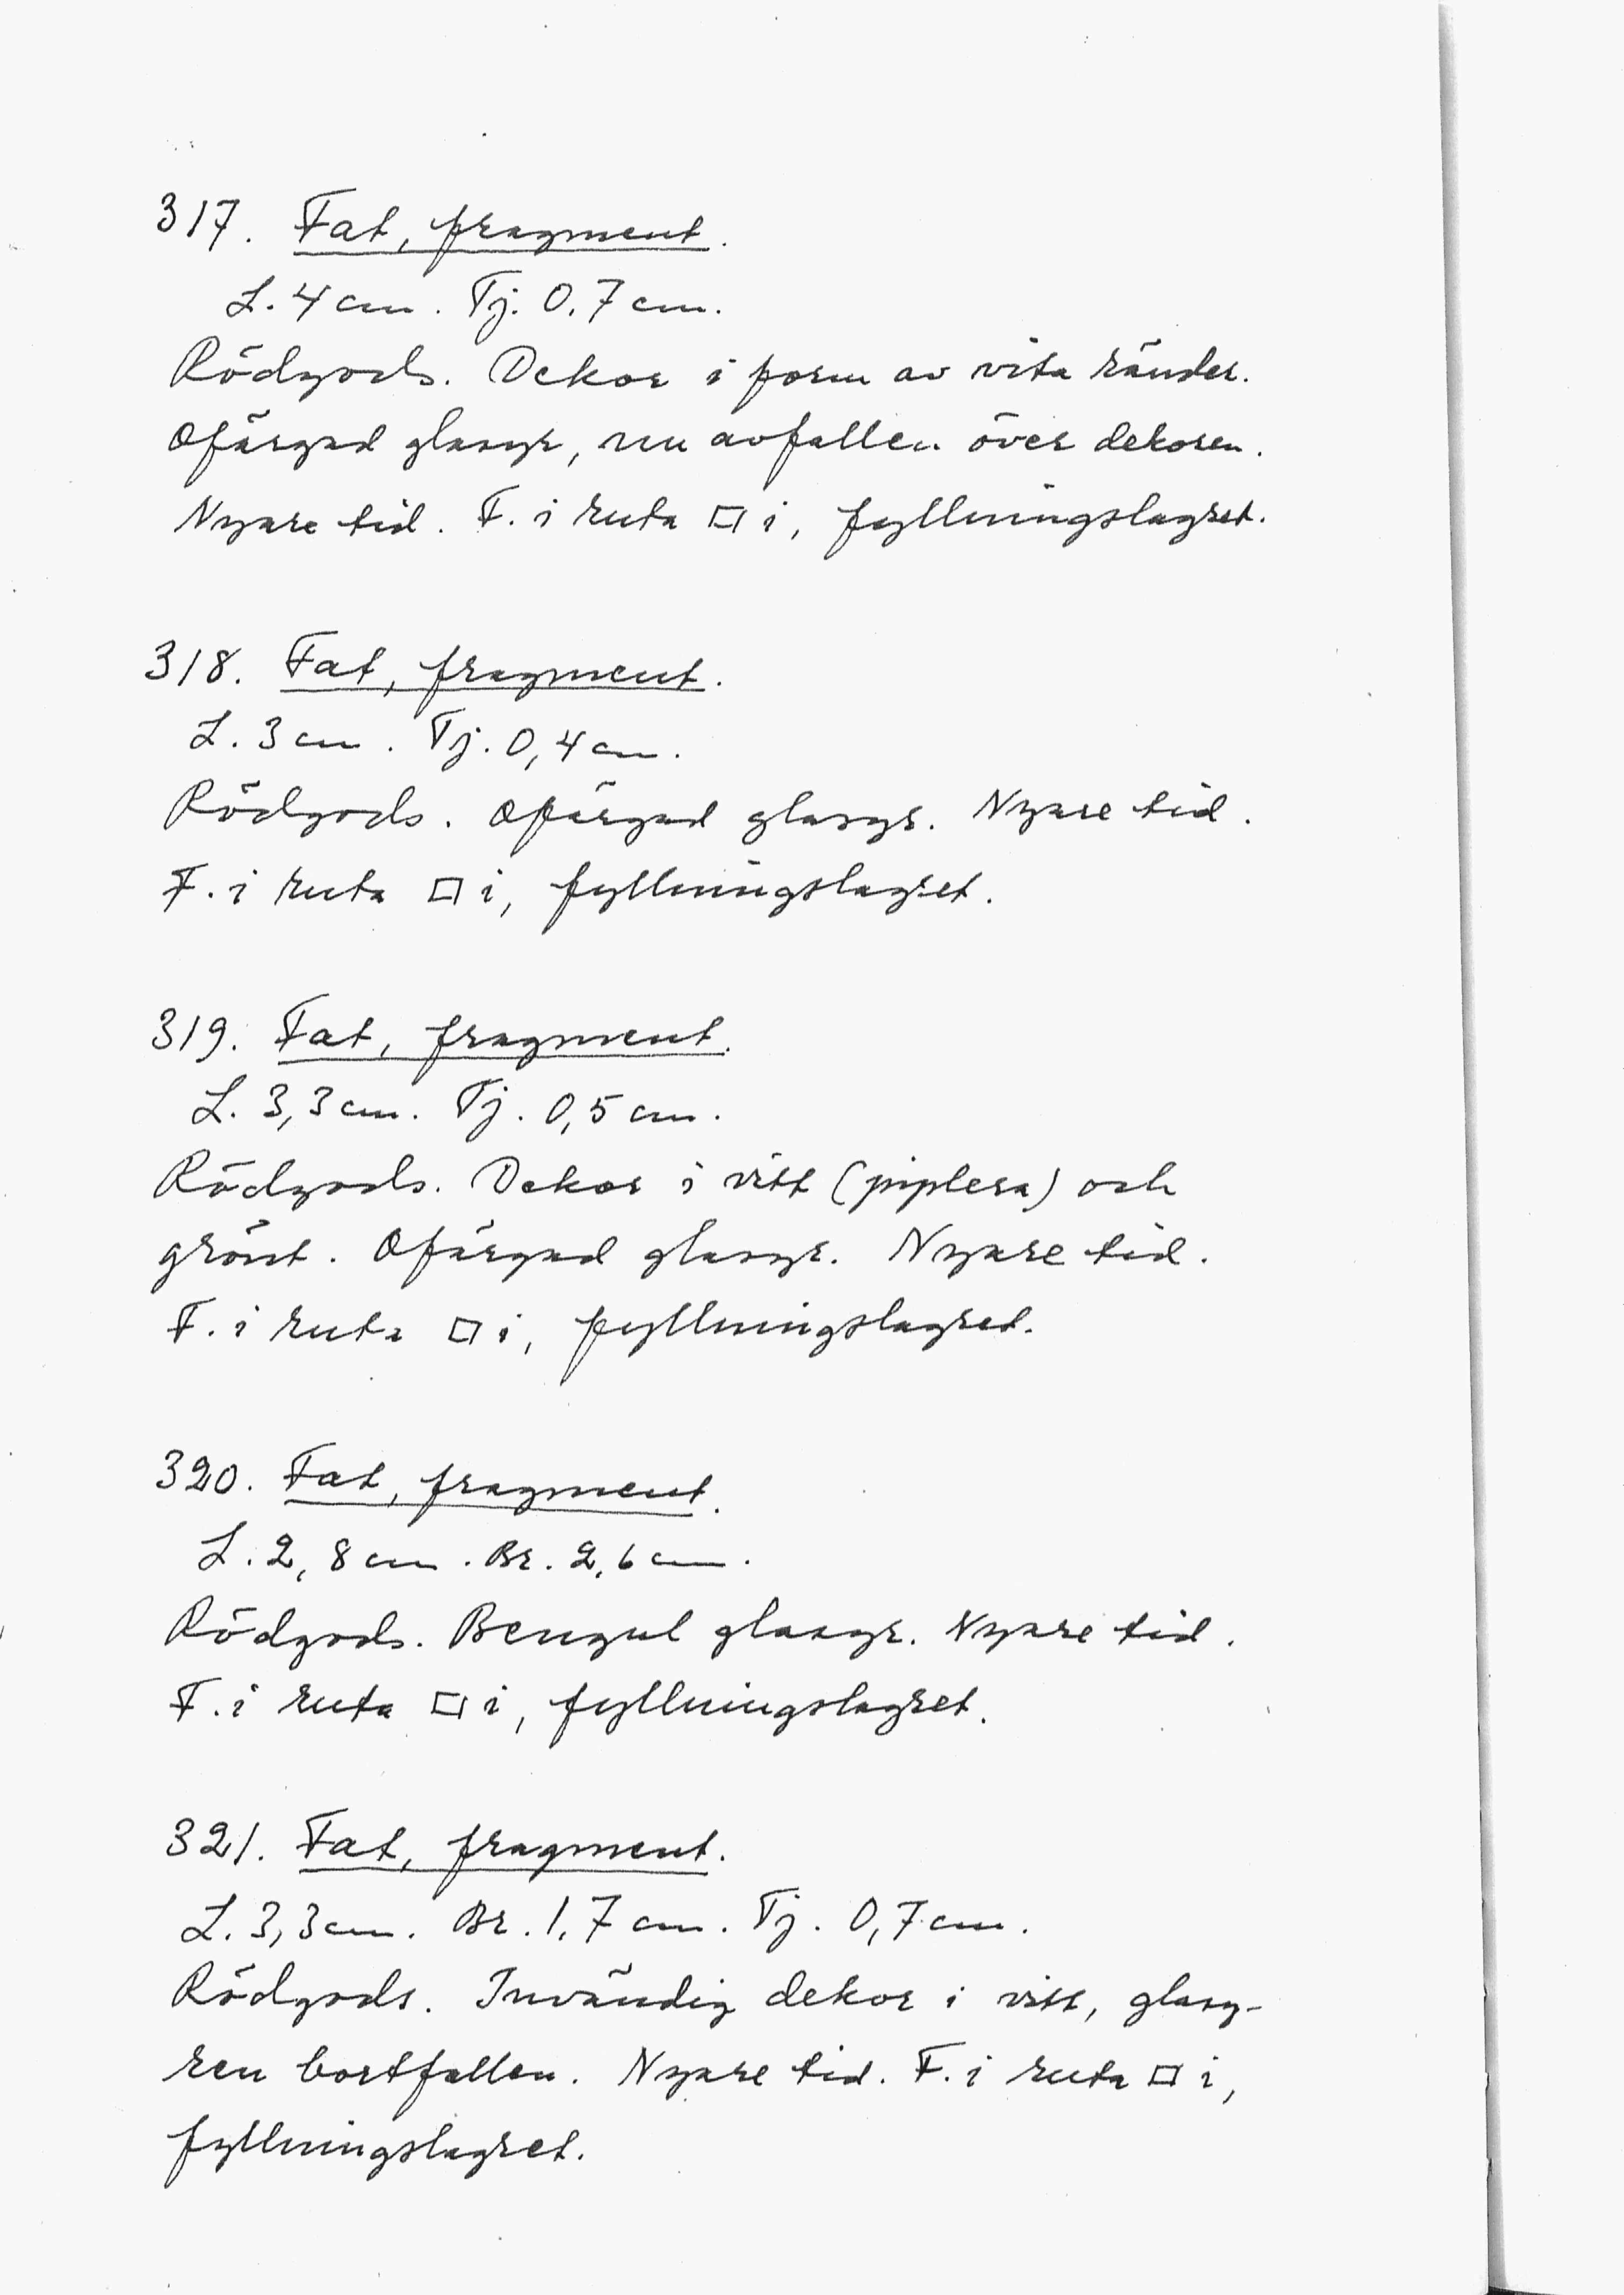 317. Fat, fragment.
L. 4 cm. Tj. 0,7 cm.
Rödgods. Dekor i form av vita ränder.
Ofärgad glasyr, nu avfallen över dekoren.
Nyare tid. F. i ruta □ i, fyllningslagret.
318. Fat, fragment.
L. 3 cm. Tj. 0,4 cm.
Rödgods. Ofärgad glasyr. Nyare tid.
F. i ruta □ i, fyllningslagret.
319. Fat, fragment.
L. 3,3 cm. Tj. 0,5 cm.
Rödgods. Dekor i vitt (piplera) och
grönt. Ofärgad glasyr. Nyare tid.
F. i ruta □ i, fyllningslagret.
320. Fat, fragment.
L. 2,8 cm. Br. 2,6 cm.
Rödgods. Bengul glasyr. Nyare tid.
F. i ruta □ i, fyllningslagret.
321. Fat, fragment.
L. 3,3 cm. Br. 1,7 cm. Tj. 0,7 cm.
Rödgods. Invändig dekor i vitt, glasy-
ren bortfallen. Nyare tid. F. i ruta □ i,
fyllningslagret.